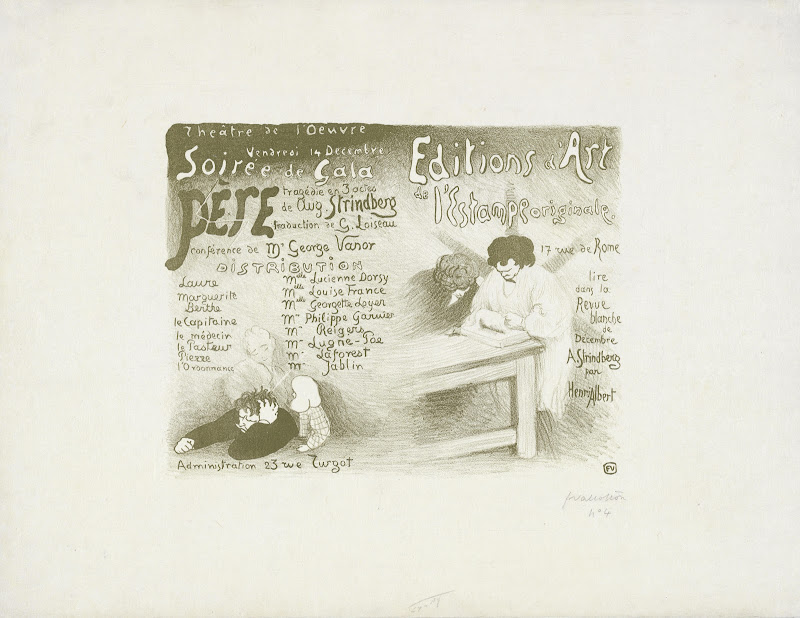 Théâtre de l'Oeuvre
Vendredi 14 Décembre
Soirée de Gala
PÈRE
tragédie en 3 actes
de Aug Strindberg
traduction de G. Loiseau
conférence de Mr George Vanor
DISTRIBUTION
Laure Mlle Lucienne Dorsy
Marguerite Mlle Louise France
Berthe Mlle Georgette Loyer
le Capitaine Mr Philippe Garnier
le médecin Mr Reigers
le Pasteur Mr Lugne-Poe
Pierre Mr Laforest
l'Ordonnance Mr Jablin
Administration 23 rue Turgot
Editions d'Art
de l'Estampe originale.
17 rue de Rome
lire
dans la
Revue
blanche
de
Décembre
A Strindberg
par
Henri Albert
FV
fvallotton
n° 4